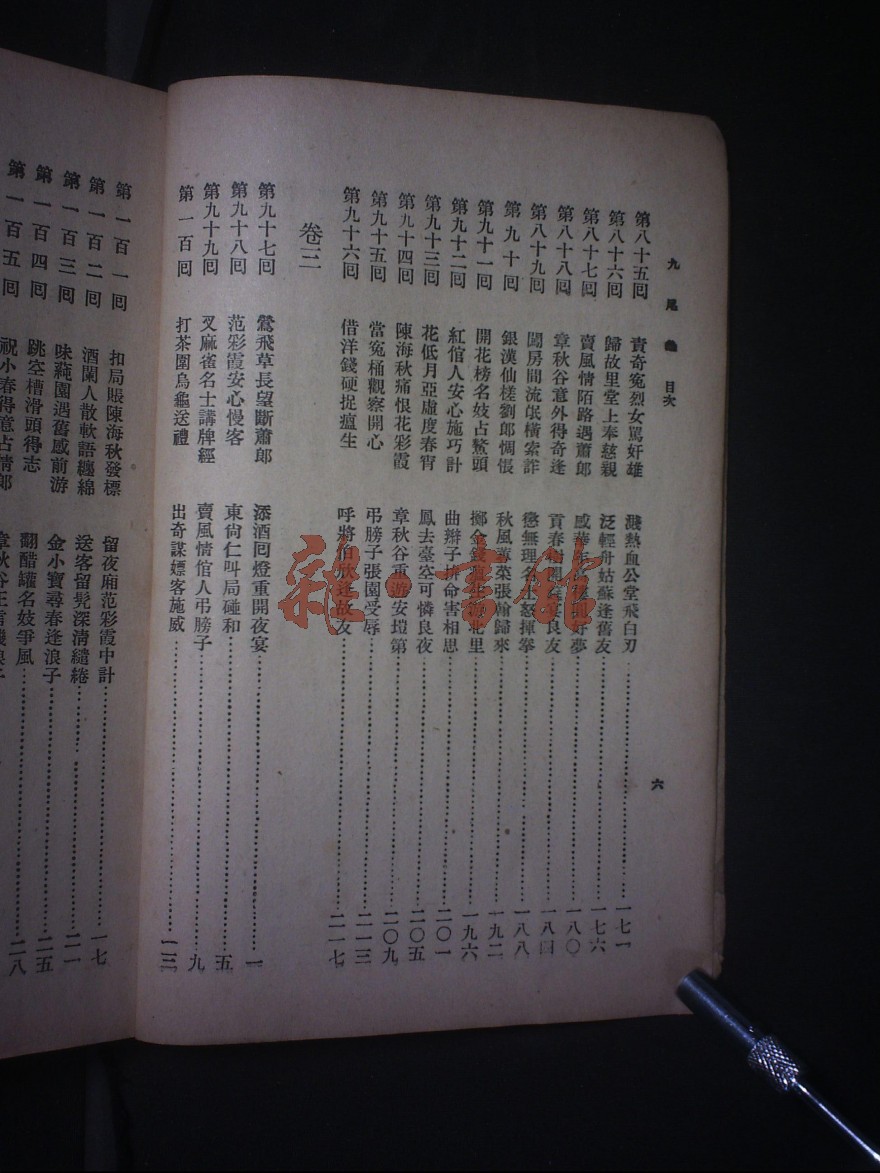 九尾龜 目次
六
第八十五回 責奇寃烈女罵奸雄 濺熱血公堂飛白刃 一七一
第八十六回 歸故里堂上奉慈親 泛輕舟姑蘇逢舊友 一七六
第八十七回 賣風情陌路遇蕭郎 感華 好夢 一八〇
第八十八回 章秋谷意外得奇逢 貢春樹 宴良友 一八四
第八十九回 鬧房間流氓橫索詐 懲無理名士怒揮拳 一八八
第九十回 銀漢仙槎劉郎惆悵 秋風蓴菜張翰歸來 一九二
第九十一回 開花榜名妓占鰲頭 擲金錢 北里 一九六
第九十二回 紅倌人安心施巧計 曲辮子拚命害相思 二〇一
第九十三回 花低月亞虛度春宵 鳳去臺空可憐良夜 二〇五
第九十四回 陳海秋痛恨花彩霞 章秋谷重游安塏第 二〇九
第九十五回 當寃桶觀察開心 弔膀子張園受辱 二一三
第九十六回 借洋錢硬捉瘟生 呼將伯欣逢故友 二一七
卷三
第九十七回 鶯飛草長望斷蕭郎 添酒回燈重開夜宴 一
第九十八回 范彩霞安心慢客 東尙仁叫局碰和 五
第九十九回 叉麻雀名士講牌經 賣風情倌人弔膀子 九
第一百回 打茶圍烏龜送禮 出奇謀嫖客施威 一三
第一百一回 扣局賬陳海秋發標 留夜廂范彩霞中計 一七
第一百二回 酒闌人散軟語纏綿 送客留髡深清繾綣 二一
第一百三回 味蒓園遇舊感前游 金小寶尋春逢浪子 二五
第一百四回 跳空槽滑頭得志 翻醋罐名妓爭風 二八
第一百五回 祝小春得意占情郎 章秋谷正言
雜·書館